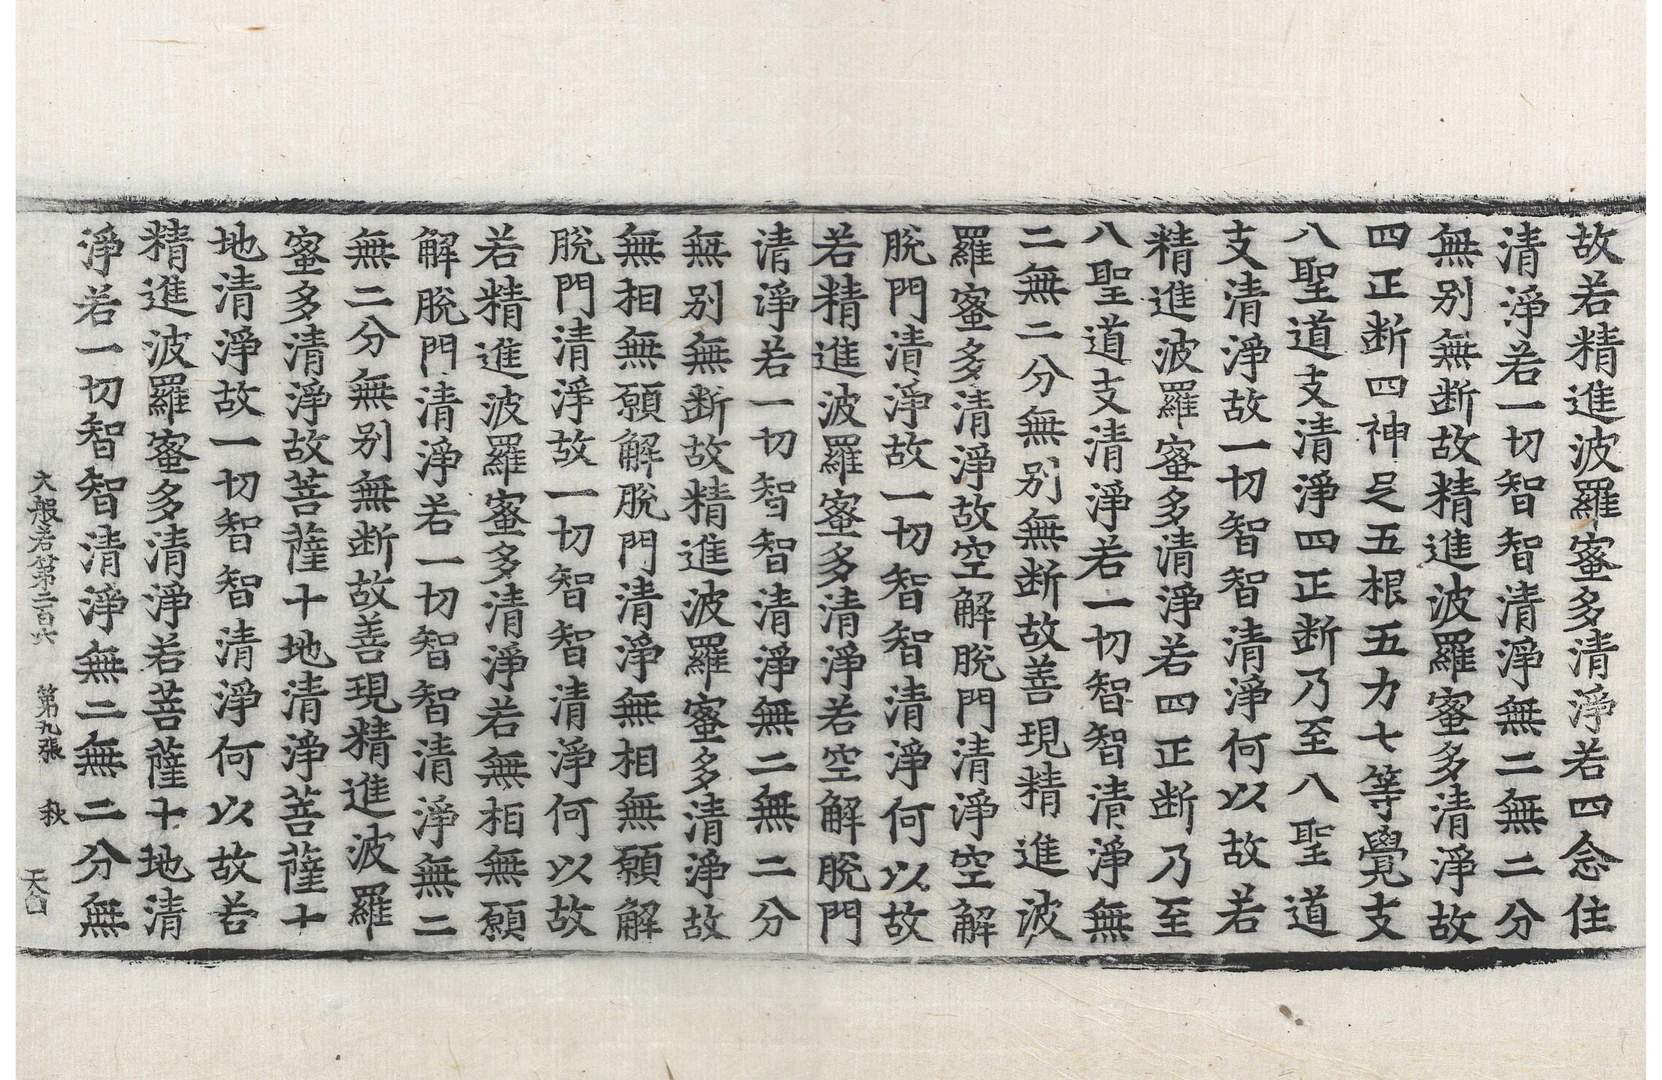 故若精進波羅蜜多清淨若四念住
清淨若一切智智清淨無二無二分
無別無断故精進波羅蜜多清淨故
四正断四神足五根五力七等覺支
八聖道支清淨四正断乃至八聖道
支清淨故一切智智清淨何以故若
精進波羅蜜多清淨若四正断乃至
八聖道支清淨若一切智智清淨無
二無二分無別無断故善現精進波
羅蜜多清淨故空解脫門清淨空解
脫門清淨故一切智智清淨何以故
若精進波羅蜜多清淨若空解脫門
清淨若一切智智清淨無二無二分
無別無断故精進波羅蜜多清淨故
無相無願解脫門清淨無相無願解
脫門清淨故一切智智清淨何以故
若精進波羅蜜多清淨若無相無願
解脫門清淨若一切智智清淨無二
無二分無別無断故善現精進波羅
蜜多清淨故菩薩十地清淨菩薩十
地清淨故一切智智清淨何以故若
精進波羅蜜多清淨若菩薩十地清
淨若一切智智清淨無二無二分無
大般若第二百六 第九張 秋 天